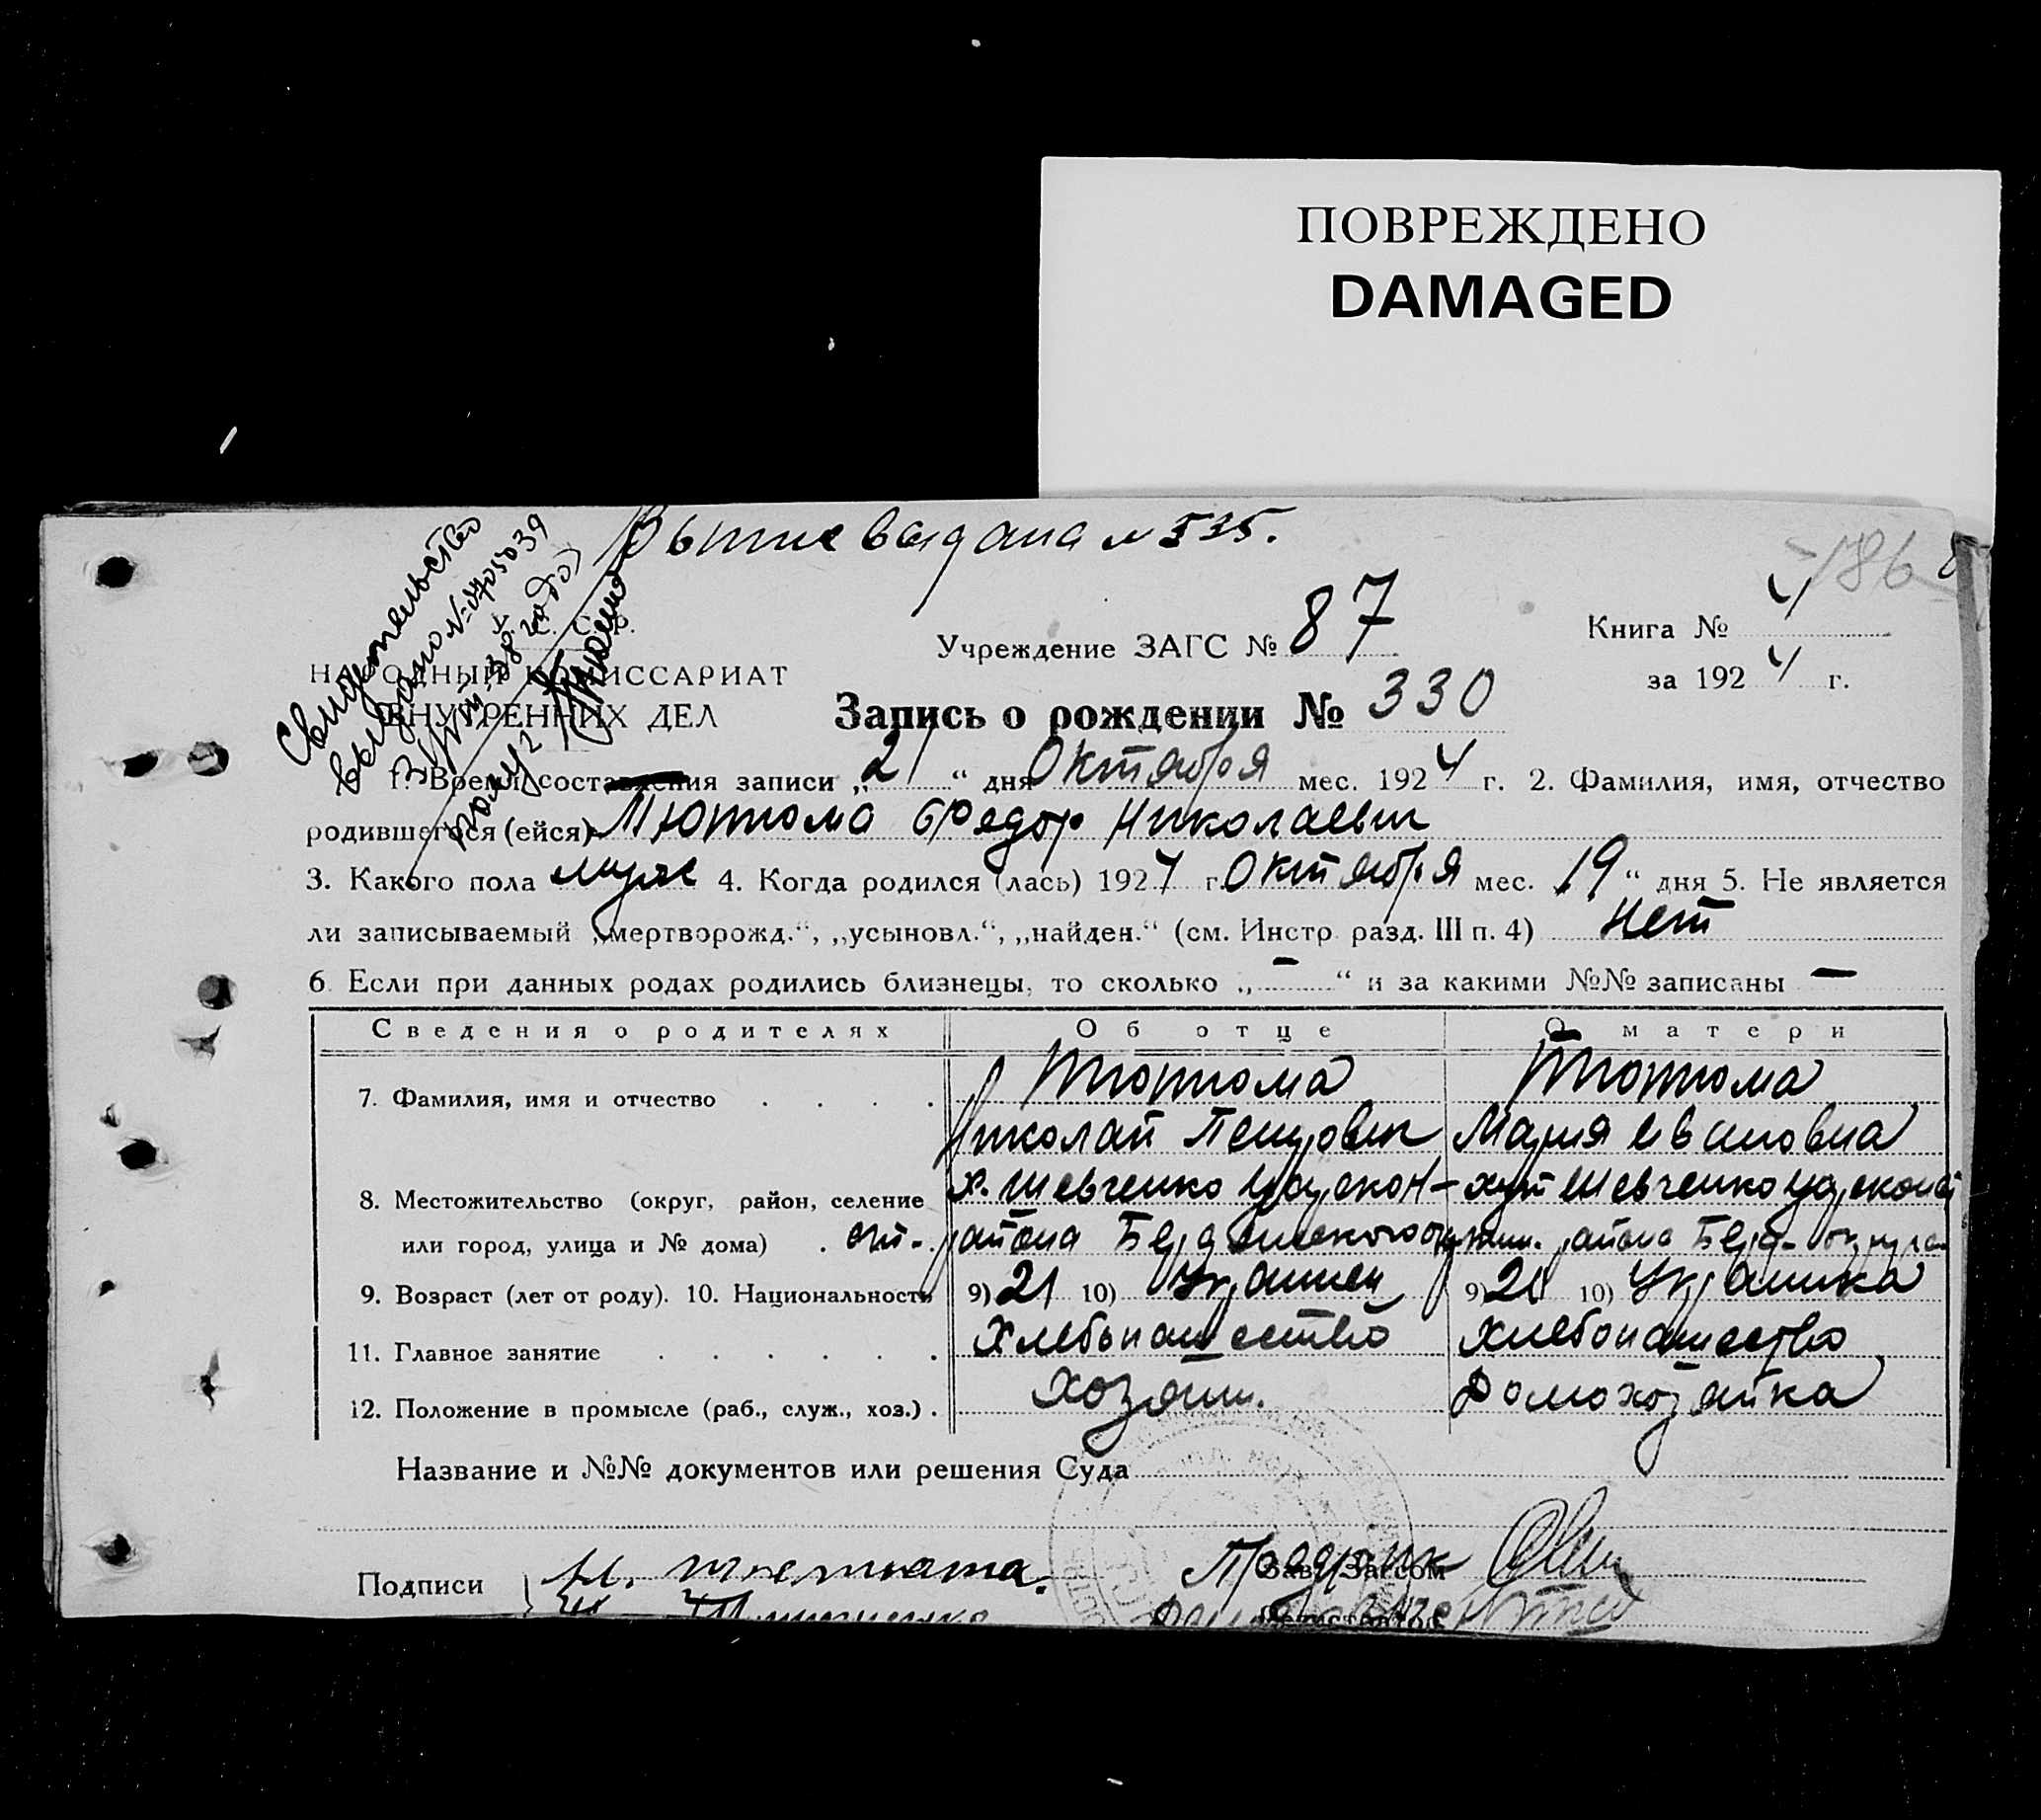 ПОВРЕЖДЕНО
DAMAGED
выдана № 535.
186
Свидетельство
выдано №
У. С. С. Р.
НАРОДНЫЙ КОМИССАРИАТ
ВНУТРЕННИХ ДЕЛ
Учреждение ЗАГС № 87
Книга № 4
за 1924 г.
Запись о рождении № 330
1. Время составления записи „21“ дня Октября мес. 1924 г. 2. Фамилия, имя, отчество
родившегося (ейся) Тютюма Федор Николаевич
3. Какого пола муж 4. Когда родился (лась) 1924 г. Октября мес. 19“ дня 5. Не является
ли записываемый „мертворожд.“, „усыновл.“, „найден.“ (см. Инстр. разд. III п. 4) нет
6. Если при данных родах родились близнецы, то сколько „-“ и за какими №№ записаны —
Сведения о родителях Об отце О матери
7. Фамилия, имя и отчество . . . . Тютюма Тютюма
Николай Петрович Мария Ивановна
8. Местожительство (округ, район, селение х. Шевченко хут Шевченко
или город, улица и № дома) . района Бердянского района Берд- округа
9. Возраст (лет от роду). 10. Национальность 9) 21 10) Украинец 9) 21 10) Украинка
11. Главное занятие . . . . . . Хлебопашество хлебопашество
12. Положение в промысле (раб., служ., хоз.) . хозяин. Домохозяйка
Название и №№ документов или решения Суда
Подписи Н. Зав. Загсом